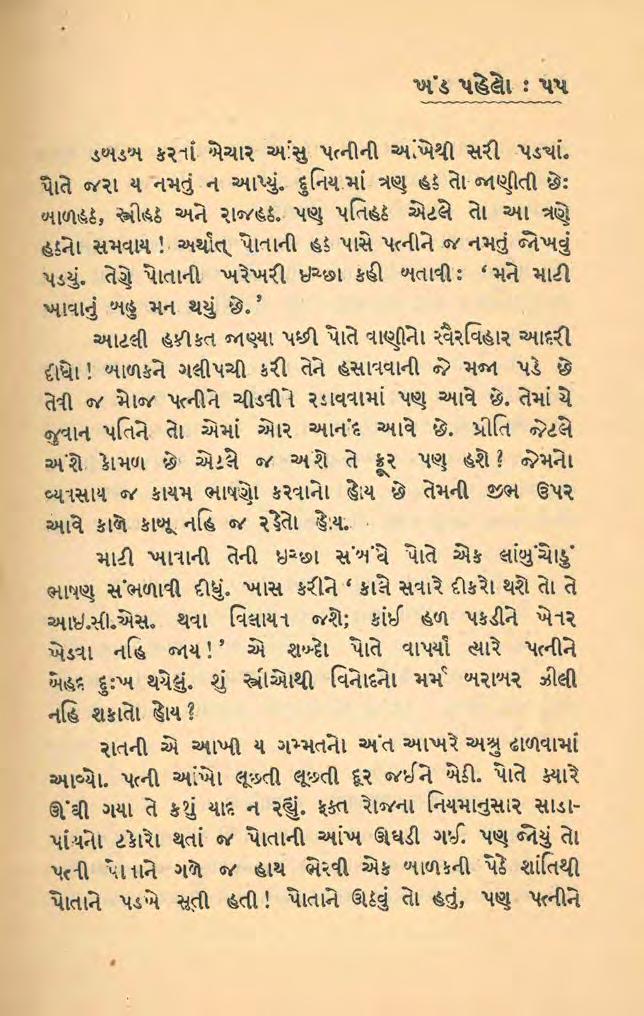 ખંડ પહેલો : ૫૫
ડબડબ કરતાં બેચાર આંસુ પત્નીની આંખેથી સરી પડચાં.
પોતે જરા ય નમતું ન આપ્યું. દુનિયામાં ત્રણ હઠ તો જાણીતી છેઃ
બાળહઠ, સ્ત્રીહઠ અને રાજહઠ. પણ પતિહઠ એટલે તો આ ત્રણે
હઠનો સમવાય ! અર્થાત્ પોતાની હઠ પાસે પત્નીને જ નમતું જોખવું
પડયું. તેણે પોતાની ખરેખરી ઇચ્છા કહી બતાવી: ‘મને માટી
ખાવાનું બહુ મન થયું છે.’
આટલી હકીકત જાણ્યા પછી પોતે વાણીનો સ્વૈરવિહાર આદરી
દીધો ! બાળકને ગલીપચી કરી તેને હસાવવાની જે મજા પડે છે
તેવી જ મોજ પત્નીને ચીડવીને રડાવવામાં પણ આવે છે. તેમાં યે
જુવાન પતિને તો એમાં ઓર આનંદ આવે છે. પ્રીતિ જેટલે
અંશે કોમળ છે એટલે જ અંશે તે ક્રૂર પણ હશે ? જેમનો
વ્યવસાય જ કાયમ ભાષણો કરવાનો હોય છે તેમની જીભ ઉપર
આવે કાળે કાબૂ નહિ જ રહેતો હોય.
માટી ખાવાની તેની ઇચ્છા સંબંધે પોતે એક લાંબુંચોડું
ભાષણ સંભળાવી દીધું. ખાસ કરીને ‘ કાલે સવારે દીકરો થશે તો તે
આઇ.સી.એસ. થવા વિલાયત જશે; કાંઈ હળ પકડીને ખેતર
ખેડવા નહિ જાય ! ’ એ શબ્દો પોતે વાપર્યા ત્યારે પત્નીને
બેહદ દુઃખ થયેલું. શું સ્ત્રીઓથી વિનોદનો મર્મ બરાબર ઝીલી
નહિ શકાતો હોય ?
રાતની એ આખી ય ગમ્મતનો અંત આખરે અશ્રુ ઢાળવામાં
આવ્યો. પત્ની આંખો લૂછતી લૂછતી દૂર જઈને બેઠી. પોતે ક્યારે
ઊંઘી ગયા તે કશું યાદ ન રહ્યું. ફક્ત રોજના નિયમાનુસાર સાડા-
પાંચનો ટકોરો થતાં જ પોતાની આંખ ઊઘડી ગઈ. પણ જોયું તો
પત્ની પોતાને ગળે જ હાથ ભેરવી એક બાળકની પેઠે શાંતિથી
પોતાને પડખે સૂતી હતી ! પોતાને ઊઠવું તો હતું, પણ પત્નીને